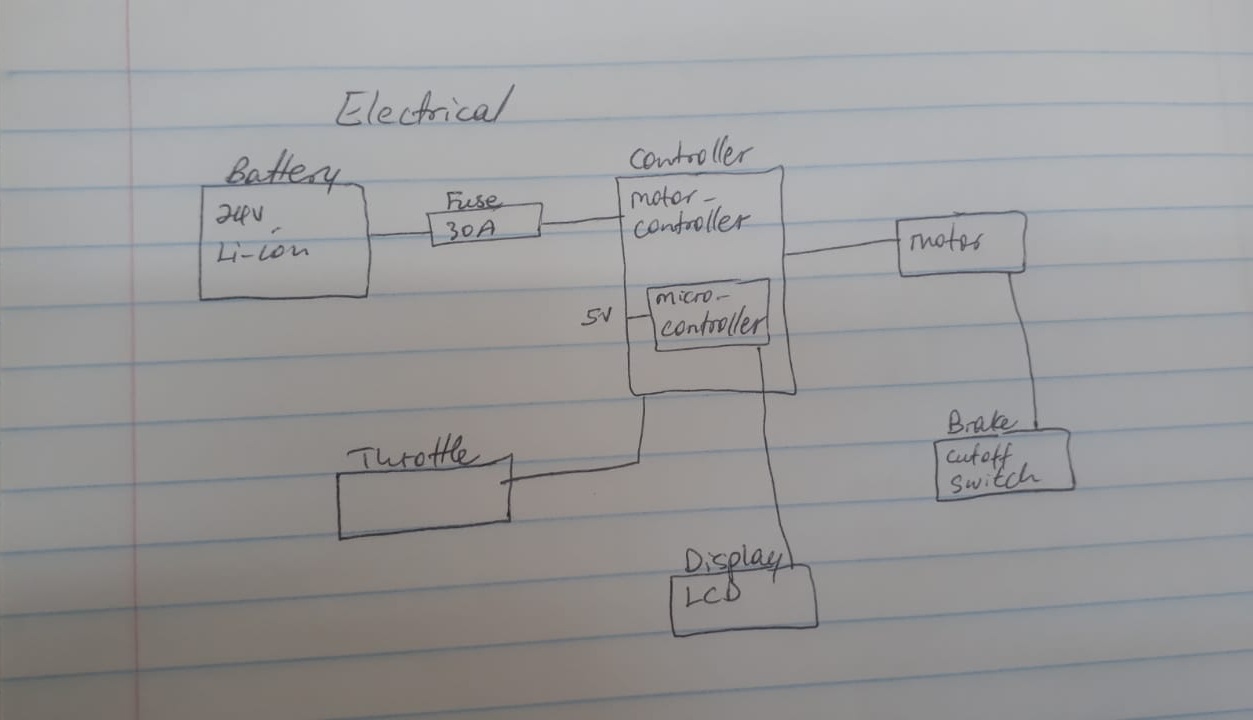 Electrical
Battery
24V
Li-ion
Fuse
30A
Controller
motor-
controller
5V
micro-
controller
motor
Throttle
Brake
cutoff
switch
Display
LCD